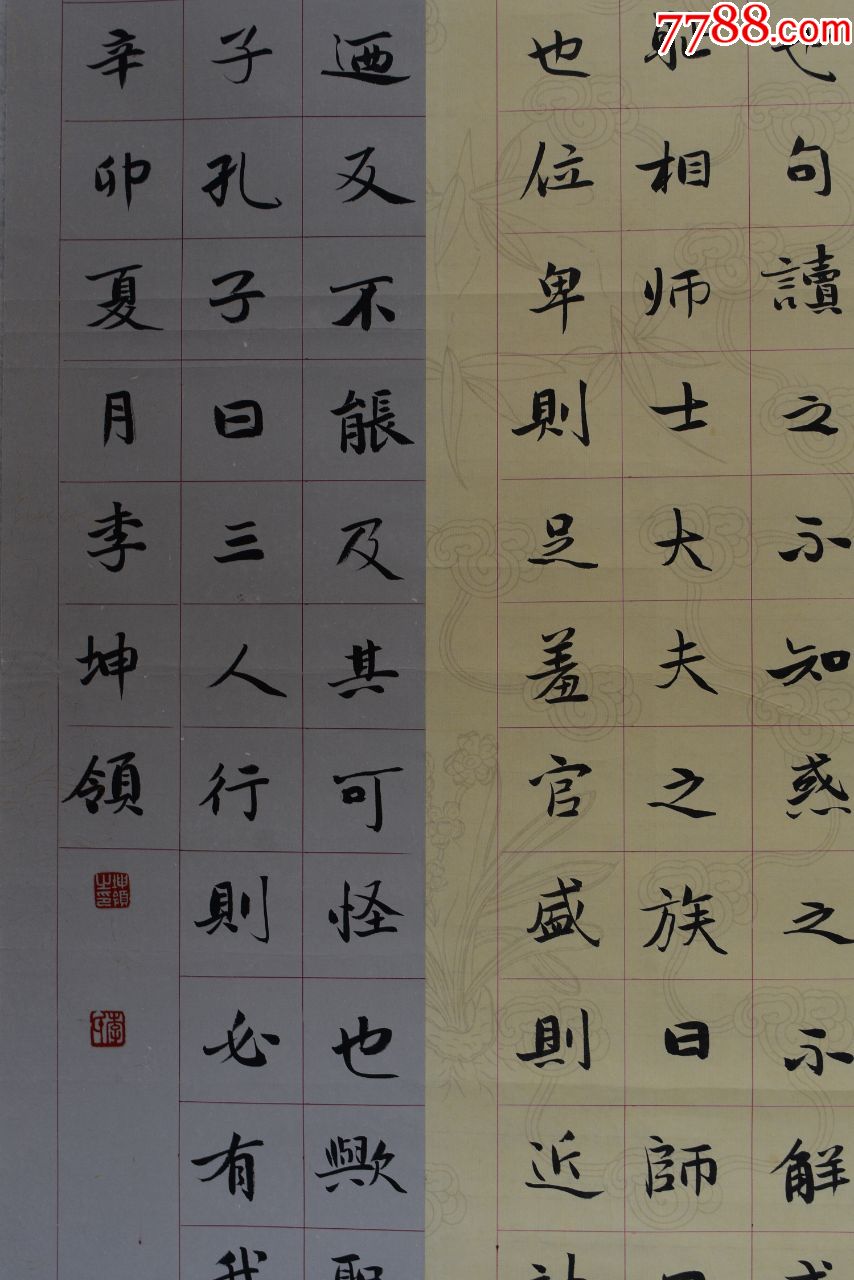 7788.com
也句讀之不知惑之不解或
耻相师士大夫之族曰師曰
也位卑則足羞官盛則近
迺反不能及其可怪也歟聖
子孔子曰三人行則必有我
辛卯夏月李坤領
坤領之印